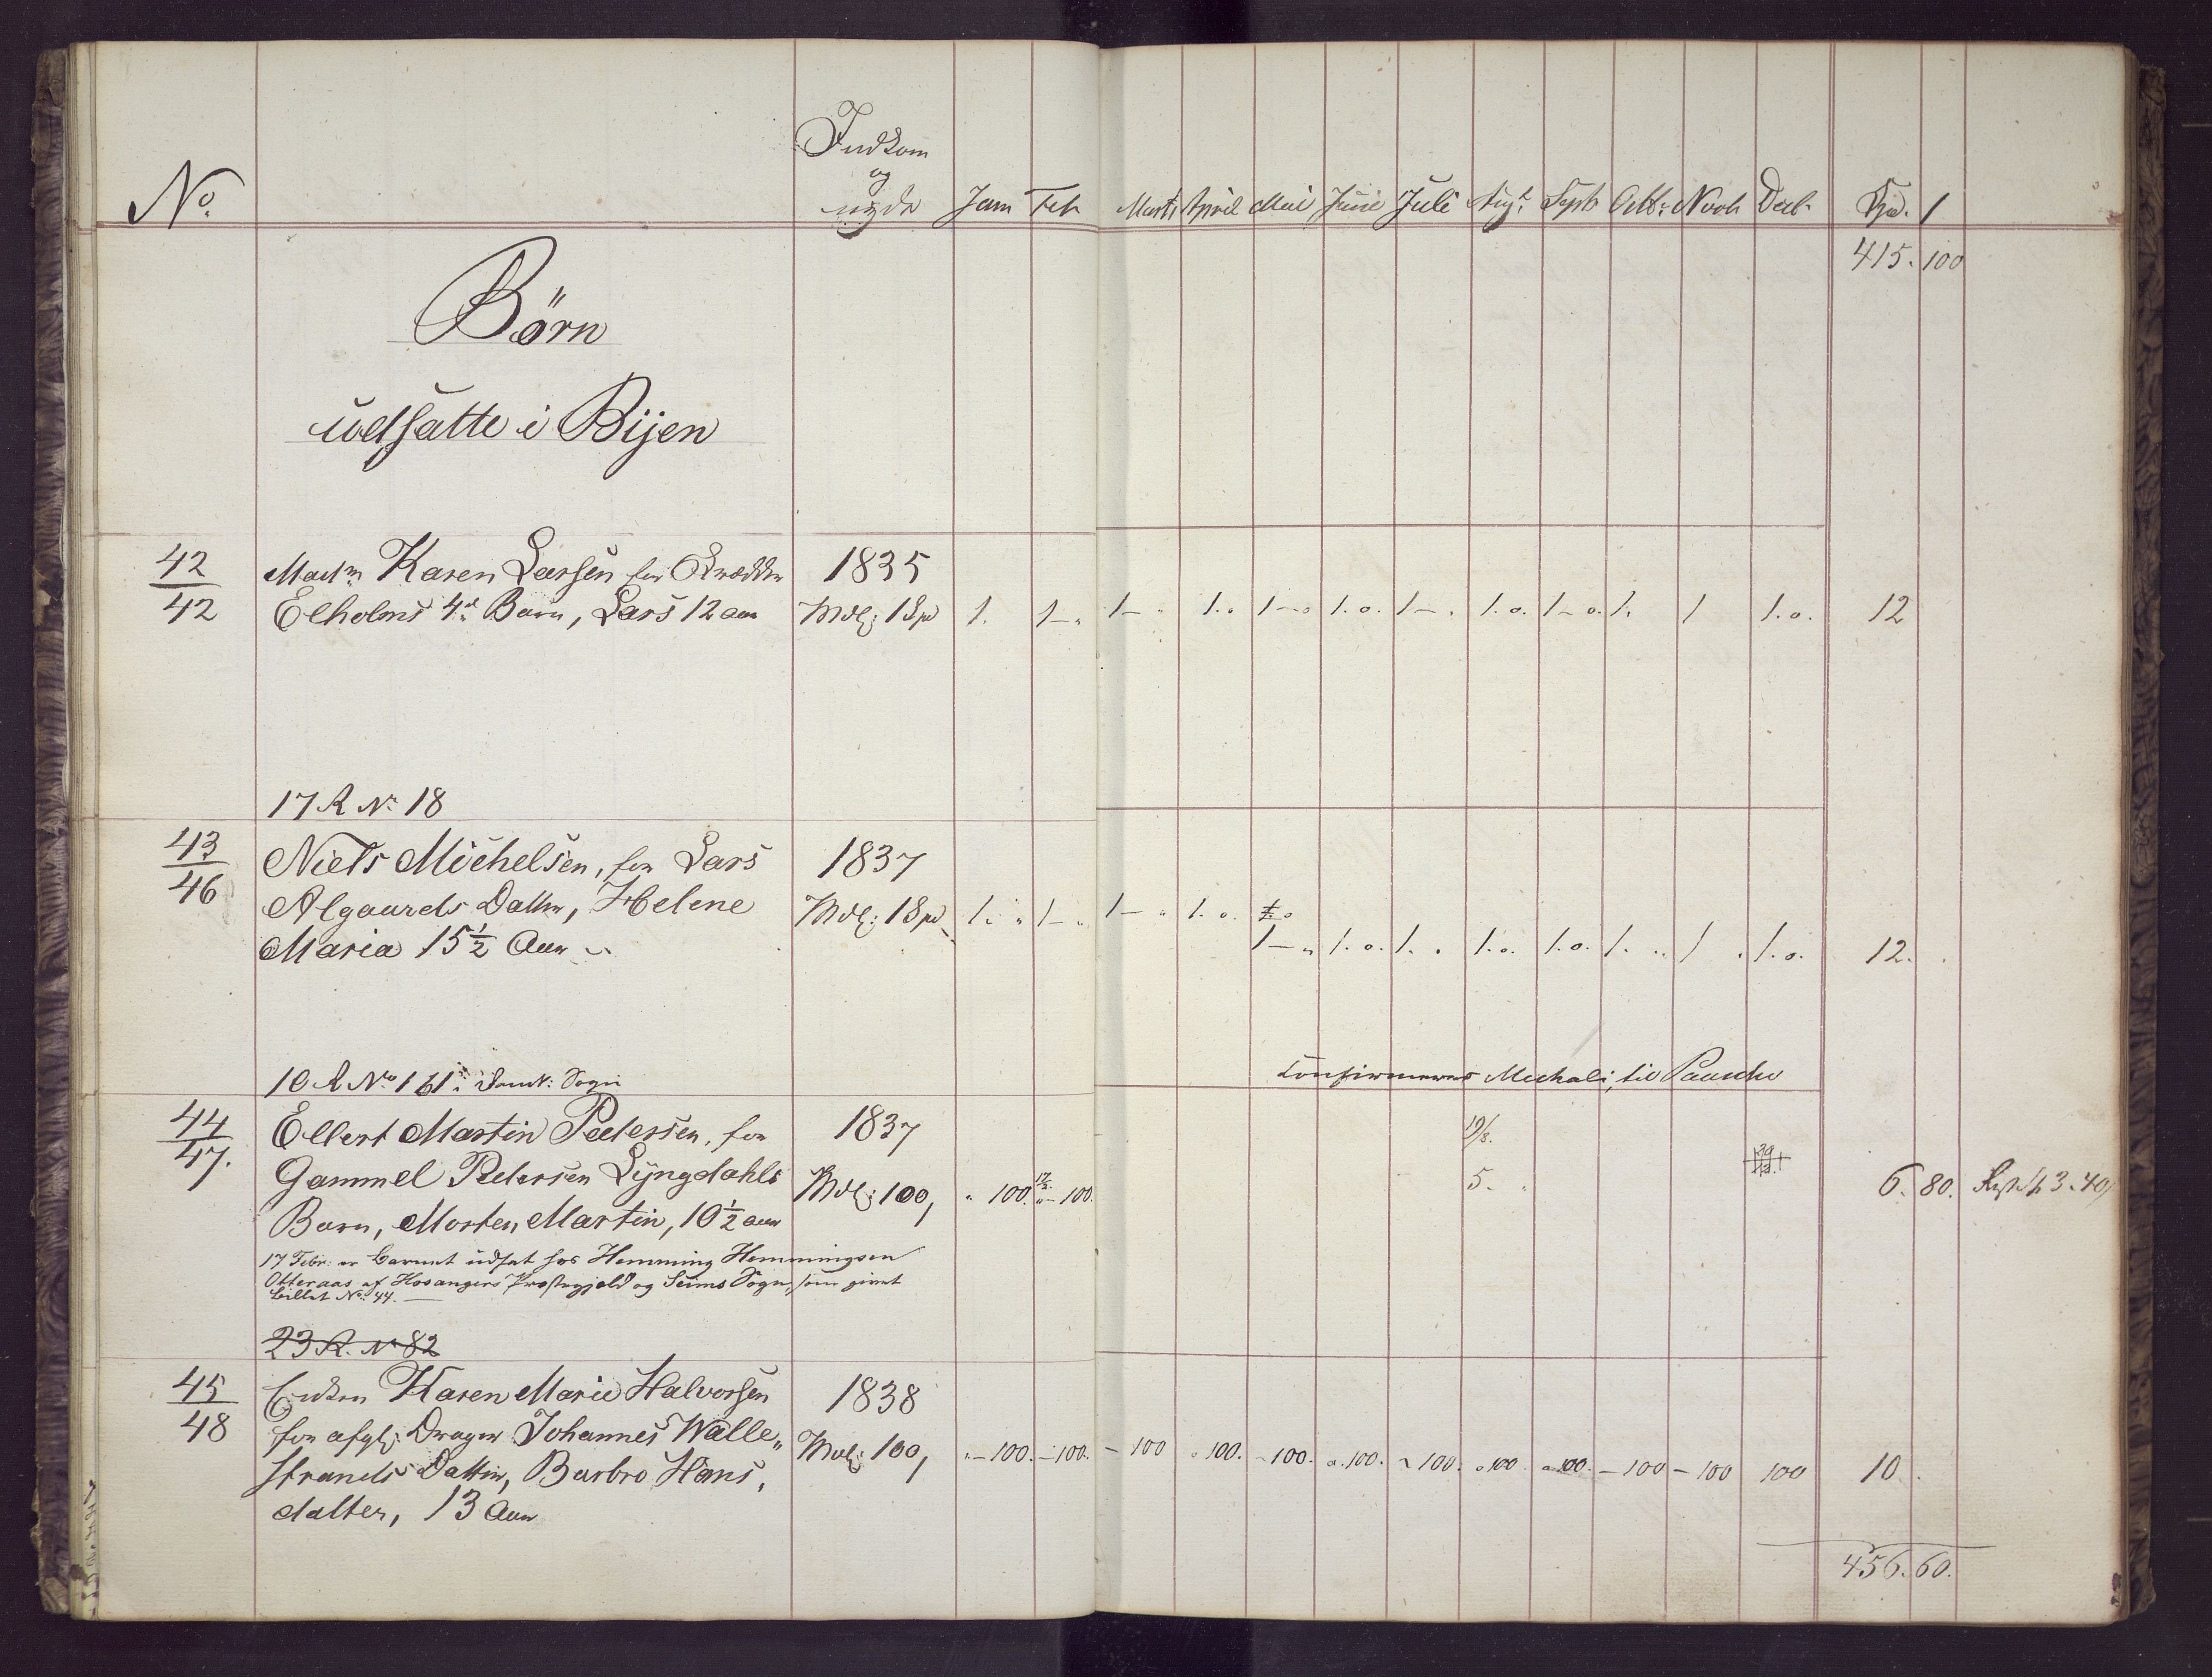 No. Indkom og nyder Jan Feb Marts April Mai Junie Juli Augt. Septb Octb: Novb Decb. Spd. 1
415. 100
Börn
udsatte i Bijen
42/42 Madm Karen Larsen for Skrædder 1835
Elholms 4de Barn, Lars 12 aar Mdl: 1 Spd 1. 1- 1- 1.o 1-o 1.o. 1- . 1.o. 1-o. 1. 1 1.o. 12
17 R No 18
43/46 Niels Michelsen, for Lars 1837
Algaards Datter, Helene Mdl: 1 Spd 1. 1- 1- 1.o.
Maria 15½ Aar 1- 1.o. 1. . 1.o. 1.o. 1. 1 1.o. 12.
Confirmeres Michali, til Paaske
10 R No 161. Domk: Sogn
44/47. Ellert Martin Pedersen, for 1837 19/8.
Gammel Pedersen Lyngdahls Mdl: 100, 100. 17/2 - 100. 5. 6. 80. Rest 3.40
Barn, Morten Martin, 10½ aar
17 Febr: er barnet udsat hos Hemming Hemmingsen
Otteraas af Hosangers Præstegjeld og Seims Sogn, som givet
billet No: 44.
23 R. No 82
45/48 Enken Karen Marie Halvorsen 1838
for afgl: Drager Johannes Walle„ Mdl: 100, - 100. - 100. - 100 100. 100. o. 100. 100. o 100 o 100. - 100 - 100 100 10.
strands Datter, Barbro Hans„
datter, 13 Aar
456. 60.